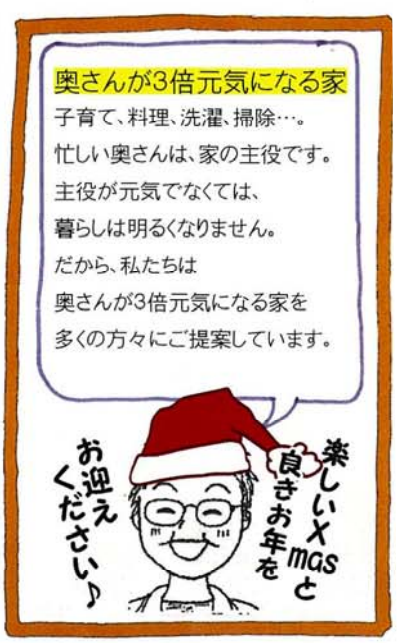 奥さんが3倍元気になる家
子育て、料理、洗濯、掃除…。
忙しい奥さんは、家の主役です。
主役が元気でなくては、
暮らしは明るくなりません。
だから、私たちは
奥さんが3倍元気になる家を
多くの方々にご提案しています。
楽しいXmasと
良きお年を
お迎え
ください♪